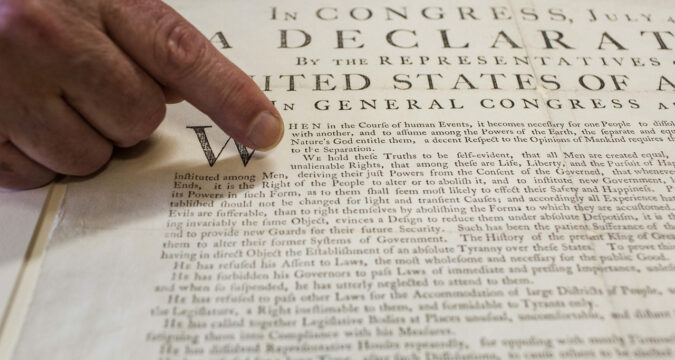 IN CONGRESS, JULY 4
A DECLARAT
BY THE REPRESENTATIVES
UNITED STATES OF A
IN GENERAL CONGRESS A
WHEN in the Courſe of human Events, it becomes neceſſary for one People to diſſol
with another, and to aſſume among the Powers of the Earth, the ſeparate and equ
Nature's God entitle them, a decent Reſpect to the Opinions of Mankind requires th
to the Separation.
WE hold theſe Truths to be ſelf-evident, that all Men are created equal,
unalienable Rights, that among theſe are Life, Liberty, and the Purſuit of H
inſtituted among Men, deriving their juſt Powers from the Conſent of the Governed, that whenever
Ends, it is the Right of the People to alter or to aboliſh it, and to inſtitute new Government,
its Powers in ſuch Form, as to them ſhall ſeem moſt likely to effect their Safety and Happineſs. P
tabliſhed ſhould not be changed for light and tranſient Cauſes; and accordingly all Experience hat
Evils are ſufferable, than to right themſelves by aboliſhing the Forms to which they are accuſtomed.
ing invariably the ſame Object, evinces a Deſign to reduce them under abſolute Deſpotiſm, it is th
and to provide new Guards for their future Security. Such has been the patient Sufferance of th
them to alter their former Syſtems of Government. The Hiſtory of the preſent King of Great
having in direct Object the Eſtabliſhment of an abſolute Tyranny over theſe States. To prove this
HE has refuſed his Aſſent to Laws, the moſt wholeſome and neceſſary for the public Good.
HE has forbidden his Governors to paſs Laws of immediate and preſſing Importance, unleſ
and when ſo ſuſpended, he has utterly neglected to attend to them.
HE has refuſed to paſs other Laws for the Accommodation of large Diſtricts of People,
the Legiſlature, a Right ineſtimable to them, and formidable to Tyrants only.
HE has called together Legiſlative Bodies at Places unuſual, uncomfortable, and diſtant
fatiguing them into Compliance with his Meaſures.
HE has diſſolved Repreſentative Houſes repeatedly, for oppoſing with manly Firmneſs
time, after ſuch Diſſolutions, to cauſe others to be